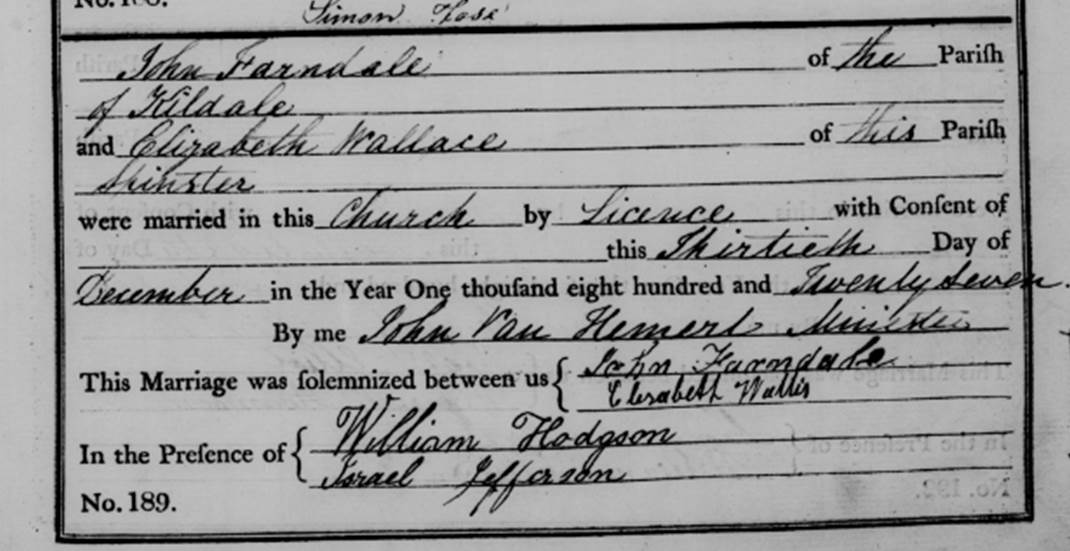 No. 188.
Simon Hose
John Farndale of the Pariſh
of Kildale
and Elizabeth Wallace of this Pariſh
Spinster
were married in this Church by Licence with Conſent of
this Thirtieth Day of
December in the Year One thouſand eight hundred and Twenty Seven.
By me John Van Hemert Minister
This Marriage was ſolemnized between us { John Farndale
Elesabeth Wallis
In the Preſence of { William Hodgson
Israel Jefferson
No. 189.